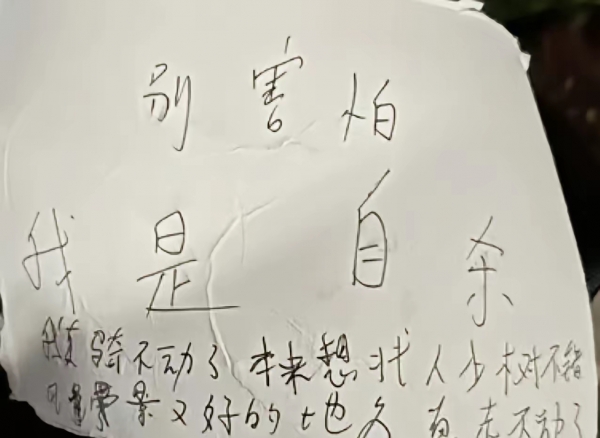 别害怕
我是自杀
骑不动了 本来想找人少树不错
风景又好的地 走不动了